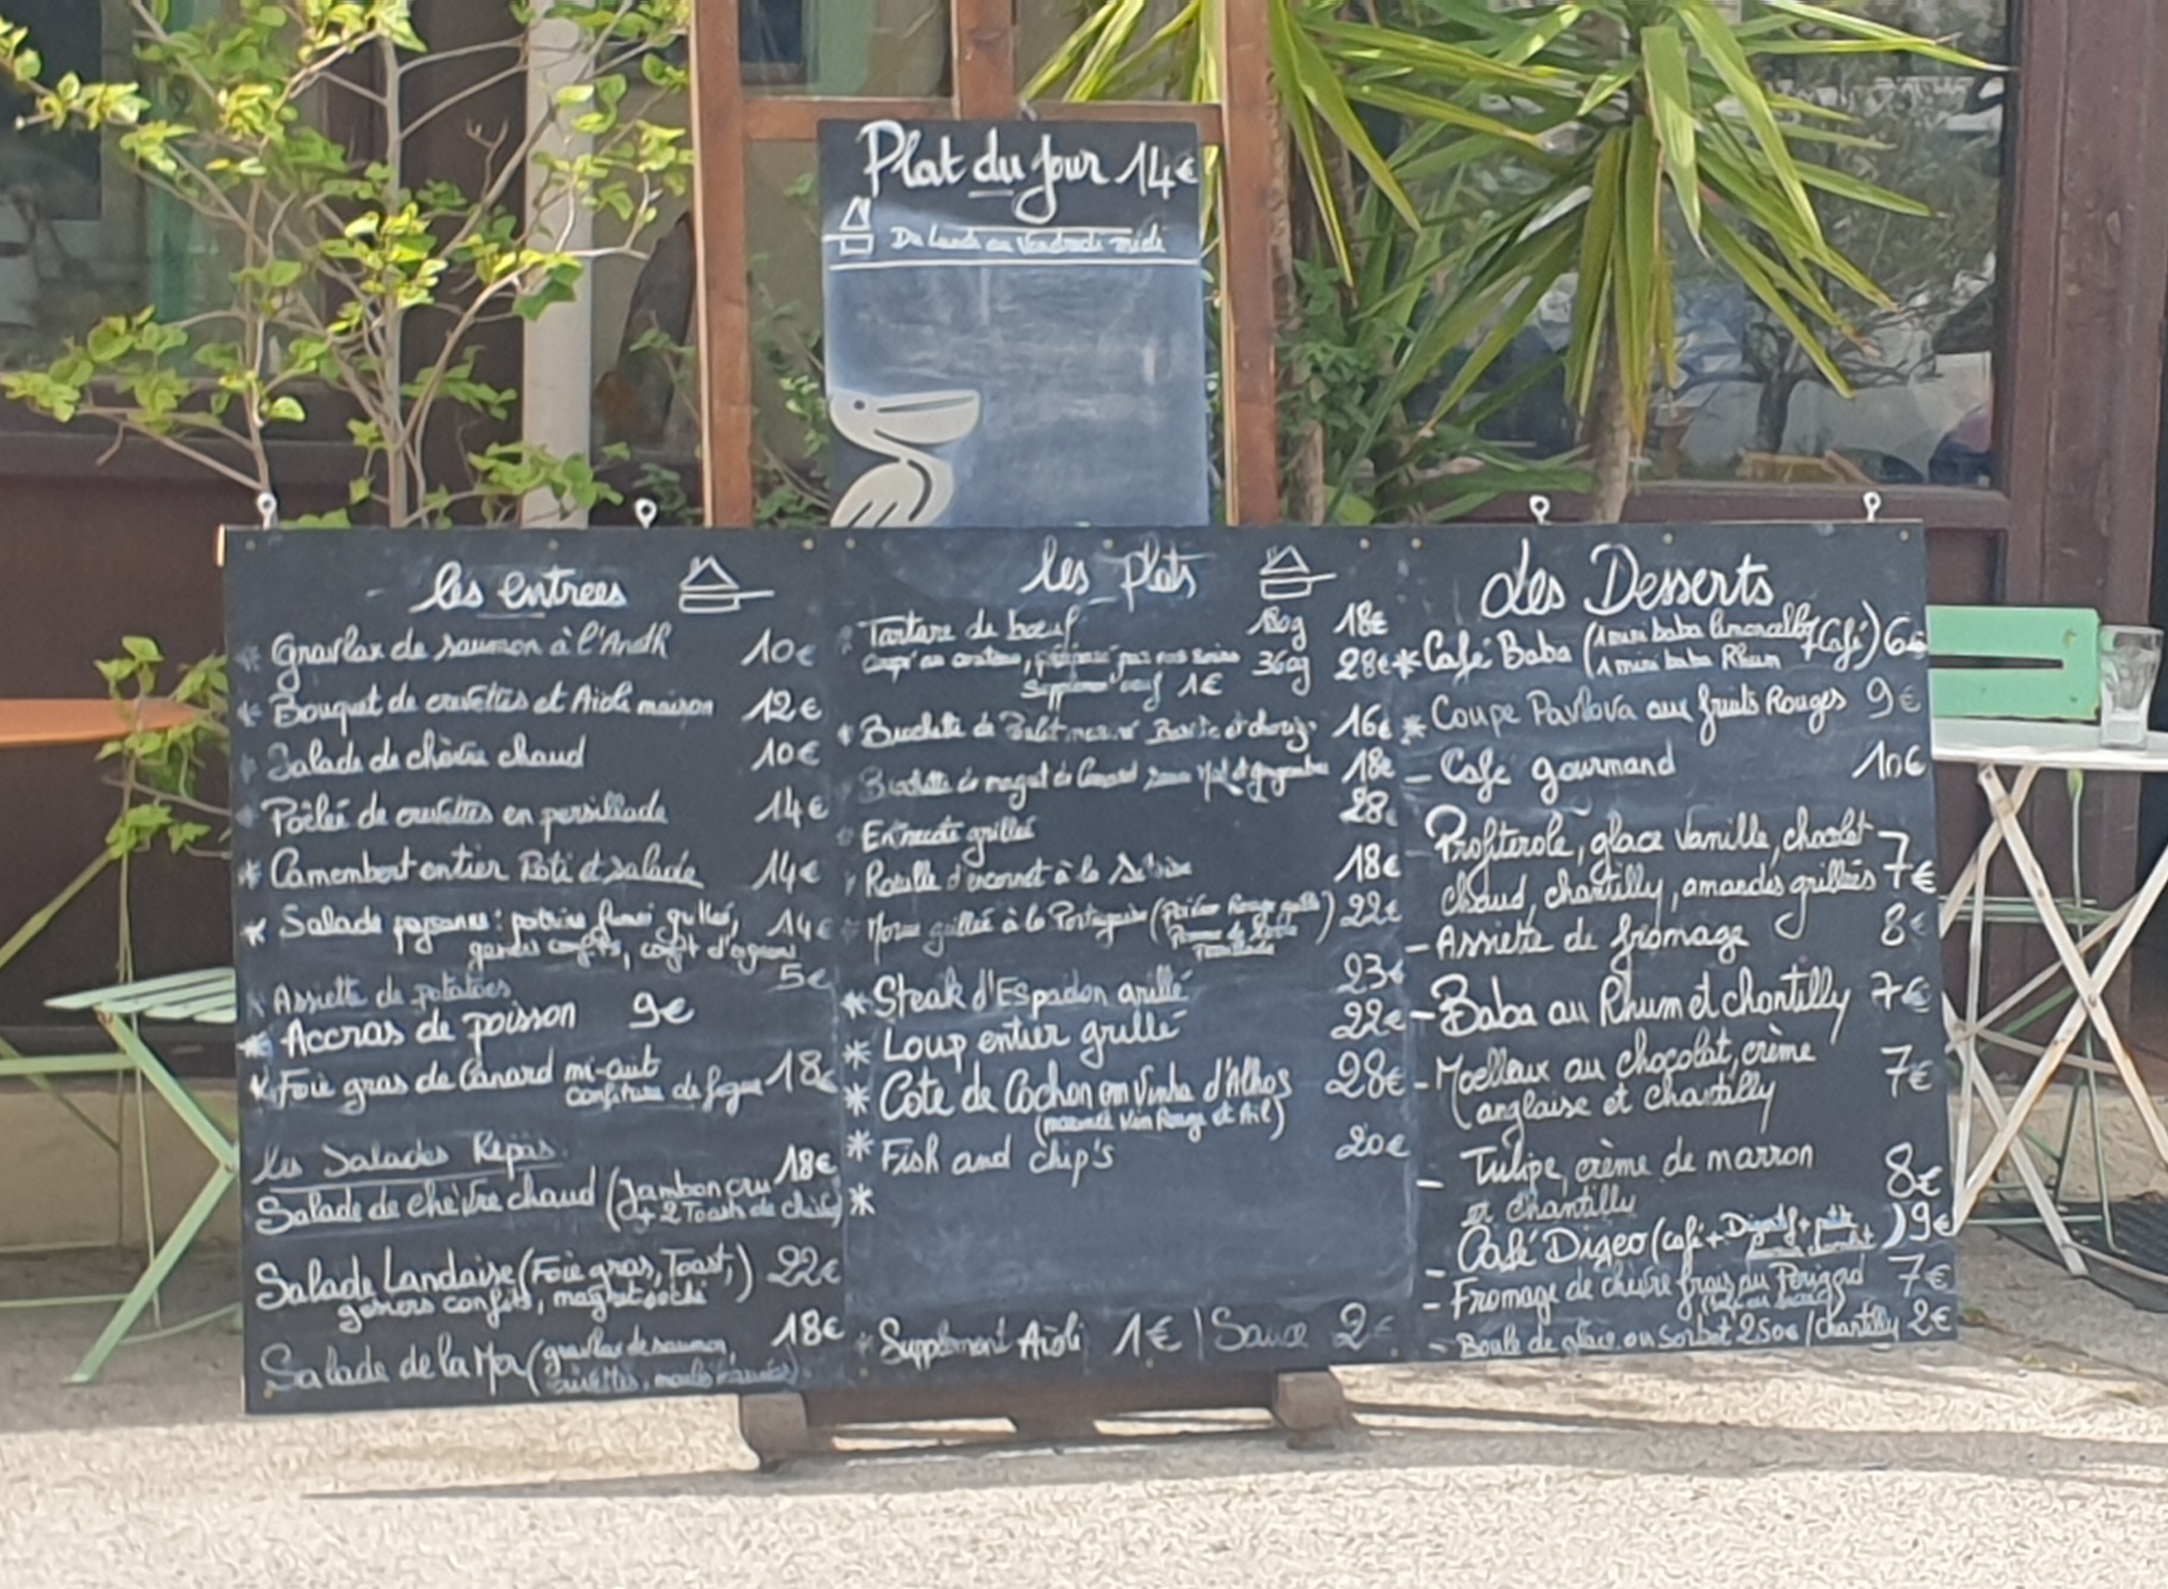 Plat du jour 14€
Du Lundi au Vendredi midi
les entrees
* Gravlax de saumon à l'Aneth 10€
* Bouquet de crevettes et Aïoli maison 12€
* Salade de chèvre chaud 10€
* Poêlée de crevettes en persillade 14€
* Camembert entier Roti et salade 14€
* Salade paysanne : poitrine fumée grillée, 14€
gesiers confits, confit d'agneau
* Assiette de potatoes 5€
* Accras de poisson 9€
* Foie gras de Canard mi-cuit 18€
confiture de figue
les Salades Repas
18€
Salade de chèvre chaud (Jambon cru
+ 2 Toasts de chèvre)
Salade Landaise (Foie gras, Toast,) 22€
gesiers confits, magret seché
18€
Salade de la Mer (gravlax de saumon,
crevettes, moules marinées)
les Plats
* Tartare de boeuf 180g 18€
coupé au couteau, préparé par nos soins 360g 28€
Supplement oeuf 1€
* Brochette de Poulet mariné Basilic et chorizo 16€
* Brochette de magret de Canard sauce Miel et gingembre 18€
28€
* Entrecote grillée
* Rouille d'encornet à la Sétoise 18€
* Morue grillée à la Portugaise (Poivron Rouge grillé) 22€
Pomme de terre
23€
* Steak d'Espadon grillé
* Loup entier grillé 22€
* Cote de Cochon em Vinha d'Alhos 28€
(mariné Vin Rouge et Ail)
* Fish and chip's 20€
*
* Supplement Aïoli 1€ | Sauce 2€
Les Desserts
* Café Baba (1 mini baba limoncello + Café) 6€
1 mini baba Rhum
* Coupe Pavlova aux fruits Rouges 9€
- Café gourmand 10€
- Profiterole, glace vanille, chocolat 7€
chaud, chantilly, amandes grillées
- Assiette de fromage 8€
- Baba au Rhum et chantilly 7€
- Moelleux au chocolat, crème 7€
anglaise et chantilly
- Tulipe, crème de marron 8€
et chantilly
- Café Digeo (café + Digestif + petite 9€
- Fromage de chèvre frais au Perigord 7€
- Boule de glace ou Sorbet 2.50€ / Chantilly 2€